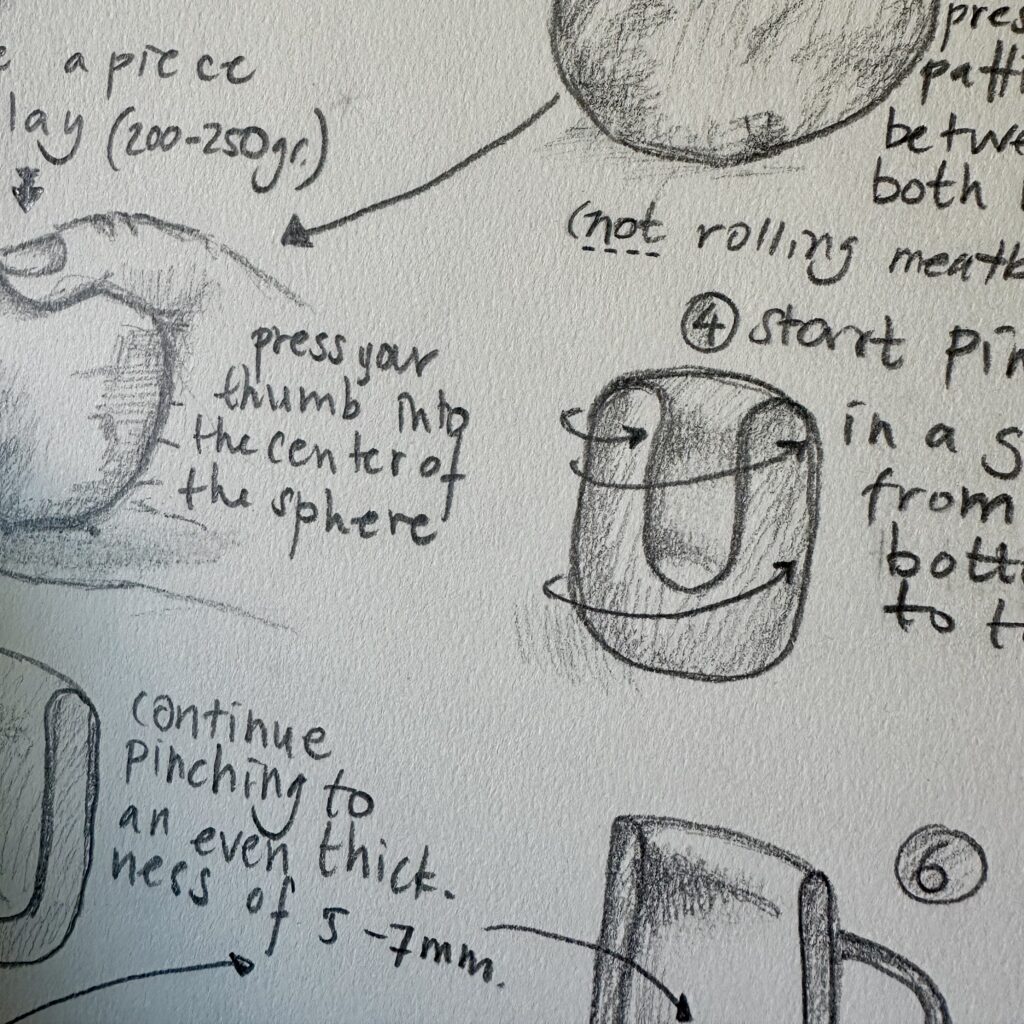 a piece
lay (200-250gr.)
pres
patti
betwe
both
(not rolling meatb
press your
thumb into
the center of
the sphere
④ start pin
in a s
from
botto
to t
continue
pinching to
an even thick.
ness of 5-7mm.
⑥